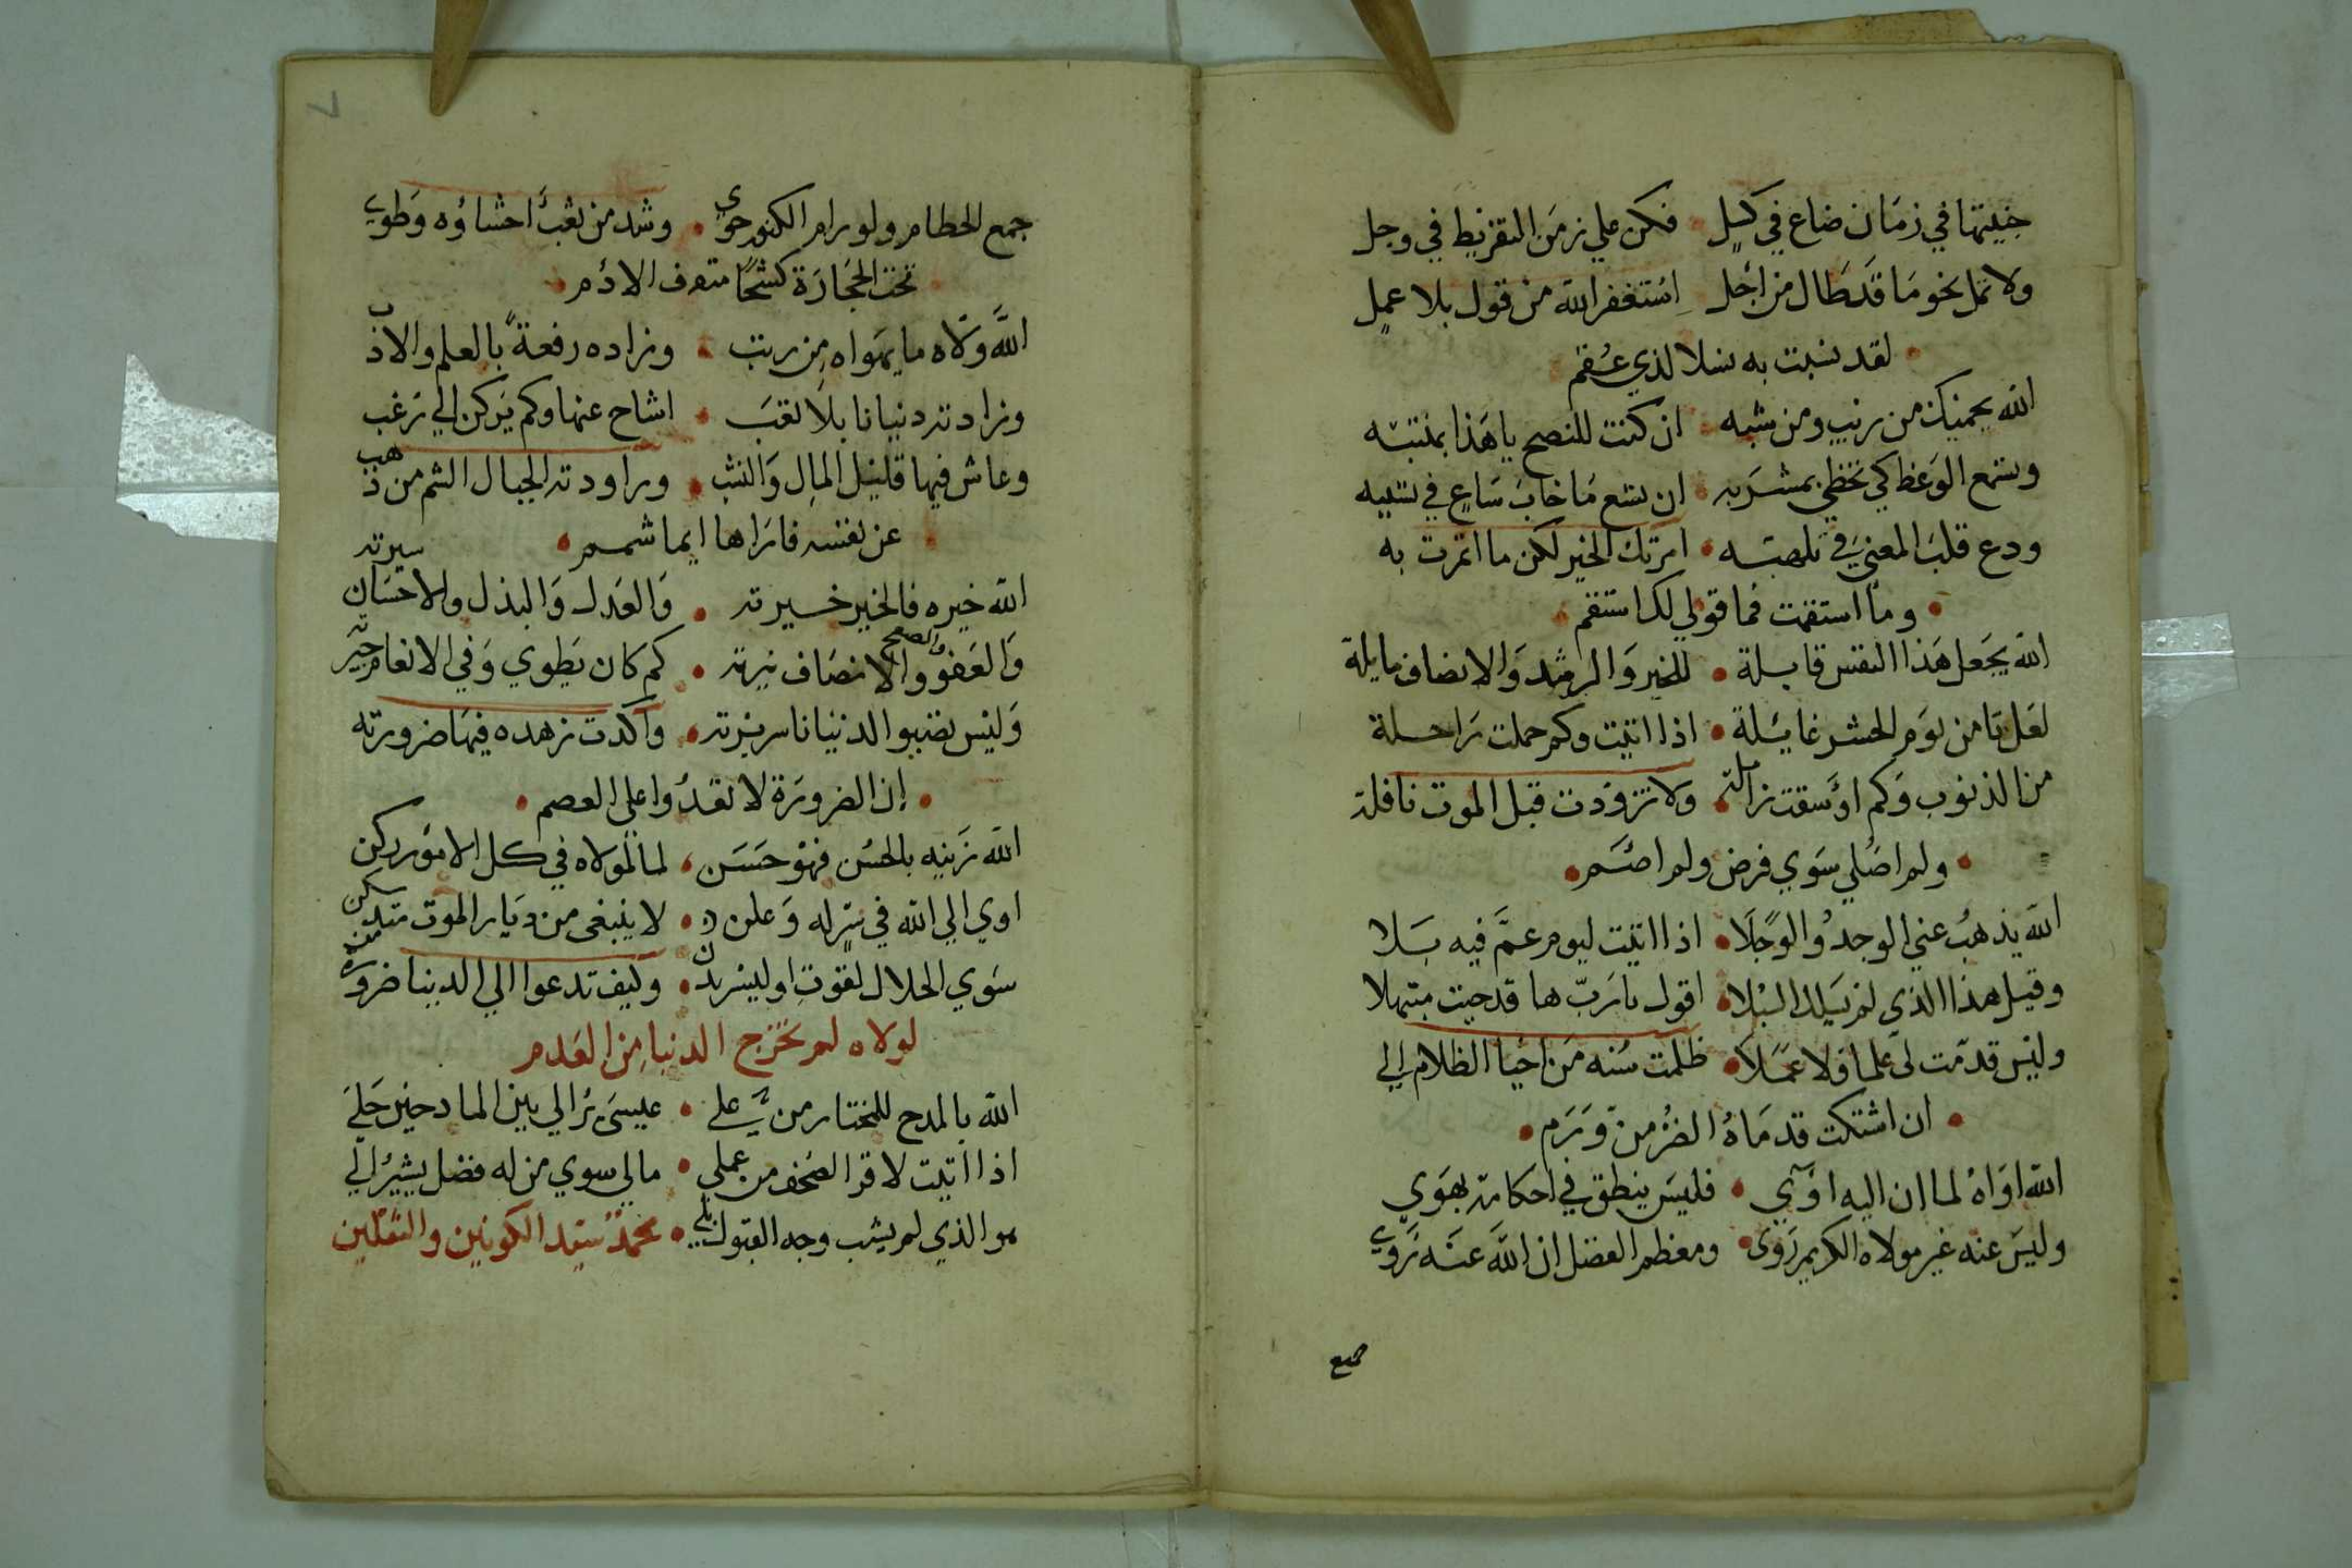 جنيتها في زمان ضاع في كسل • فكن علي زمن التفريط في وجل
ولا تمل نحو ما قد طال من اجل استغفر الله من قول بلا عمل
• لقد نسبت به نسلا لذي عقم
الله يحميك من ريب ومن شبه • ان كنت للنصح يا هذا بمنتبه
وسمع الوعظ كي تحظي بمشربه • ان تسع ما خاب ساع في تسببه
ودع قلب المعني في تلهبه • امرتك الخير لكن ما ائتمرت به
• وما استقمت فما قولي لك استقم •
الله يجعل هذا النفس قابلة • للخير والرشد والانصاف مايلة
لعل تامن يوم الحشر غايلة • اذا اتيت وكم حملت راحلة
من الذنوب وكم اوسقت زاملة • ولا تزودت قبل الموت نافلة
• ولم اصلي سوي فرض ولم اصم •
الله يذهب عني الوجد والوجلا • اذا اتيت ليوم عم فيه بلا
وقيل هذا الذي لم يسلك السبلا • اقول يا رب ها قد جيت مبتهلا
وليس قدمت لي علما ولا عملا • ظلمت سنه من احيا الظلام الي
• ان اشتكت قدماه الضر من ورم •
الله اواه لما ان اليه اوي • فليس ينطق في احكامه بهوي
وليس عنه غير مولاه الكريم زوي • ومعظم الفضل ان الله عنه زوي
جمع
٧
جمع الحطام ولو رام الكنوز حوي • وشد من سغب احشاؤه وطوي
• تحت الحجارة كشحا مترف الادم •
الله ولاه ما يهواه من رتب • وزاده رفعة بالعلم والادب
وزادته دنيانا بلا تعب • اشاح عنها وكم يركن الي رغب
وعاش فيها قليل المال والنشب • وراودته الجبال الشم من ذهب
• عن نفسه فاراها ايما شمم •
الله خيره فالخير خيرته • والعدل والبذل والاحسان سيرته
والعفو والصفح والانصاف نيرته • كم كان يطوي وفي الانعام جيرته
وليس تصبو الدنيانا سريرته • واكدت زهده فيها ضرورته
• ان الضرورة لا تعدوا علي العصم •
الله زينه بالحسن فهو حسن • لما لمولاه في كل الامور ركن
اوي الي الله في سر له وعلن • لا ينبغي من ديار الموت سكن
سوي الحلال لقوت او ليسر بدن • وكيف تدعوا الي الدنيا ضرورة من
لولاه لم تخرج الدنيا من العدم
الله بالمدح للمختار من علي • عيسي يرا لي بين المادحين حلي
اذا اتيت لاقرا الصحف من عملي • مالي سوي من له فضل يشير الي
هو الذي لم يشب وجه القبول بلي • محمد سيد الكونين والثقلين